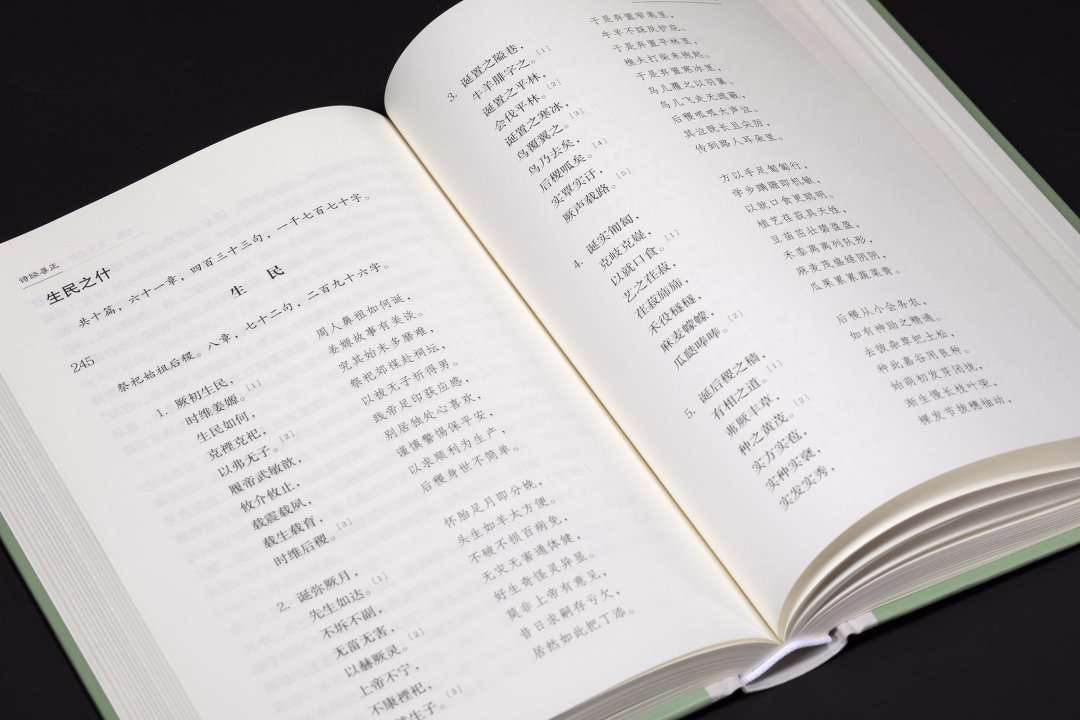 诗经录正
生民之什
共十篇,六十一章,四百三十三句,一千七百七十字。
生 民
245
祭祀始祖后稷。八章,七十二句,二百九十六字。
1. 厥初生民,
时维姜嫄。[1]
生民如何,
克禋克祀,
以弗无子。[2]
履帝武敏歆,
攸介攸止,
载震载夙,
载生载育,
时维后稷。[3]
周人鼻祖如何诞,
姜嫄故事有美谈。
究其始末多磨难,
祭祀郊禖赴祠坛,
以祓无子祈得男。
践帝足印获应感,
别居独处心喜欢,
谨慎警惕保平安,
以求顺利为生产,
后稷身世不简单。
2. 诞弥厥月,
先生如达。[1]
不拆不副,
无菑无害,
以赫厥灵。[2]
上帝不宁,
不康禋祀,
生子。[3]
怀胎足月即分娩,
头生如羊太方便。
不破不损百病免,
无灾无害通体健,
好生奇怪灵异显。
莫非上帝有意见,
昔日求嗣存亏欠,
居然如此把丁添。
3. 诞置之隘巷,
牛羊腓字之。[1]
诞置之平林,
会伐平林。[2]
诞置之寒冰,
鸟覆翼之。[3]
鸟乃去矣,
后稷呱矣。[4]
实覃实訏,
厥声载路。[5]
于是弃置窄巷里,
牛羊不踩反护庇。
于是弃置平林里,
樵夫打柴来抱起。
于是弃置寒冰里,
鸟儿覆之以羽翼。
鸟儿飞走无遮蔽,
后稷呱呱大声泣。
其泣既长且尖厉,
传到路人耳朵里。
4. 诞实匍匐,
克岐克嶷,
以就口食。[1]
艺之荏菽,
荏菽旆旆,
禾役穟穟,
麻麦幪幪,
瓜瓞唪唪。[2]
方以手足匍匐行,
学步蹒跚即机敏,
以就口食更聪明。
植艺荏菽具天性,
豆苗茁壮碧盈盈,
禾黍离离列队形,
麻麦茂盛绿阴阴,
瓜果累累蔬菜青。
5. 诞后稷之穑,
有相之道。[1]
茀厥丰草,
种之黄茂。[2]
实方实苞,
实种实褎,
实发实秀,
后稷从小会务农,
如有神助之精通。
去拔杂草把土松,
种此嘉谷用良种。
始萌初发芽闭拢,
渐生渐长枝叶荣,
稞发节拔穗抽动,